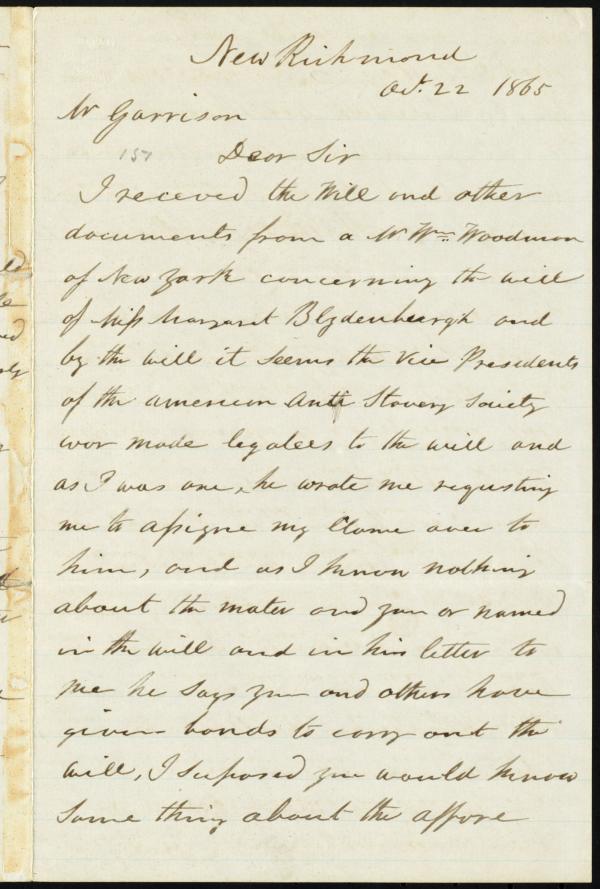 New Richmond
Oct. 22 1865
Mr Garrison
151
Dear Sir
I receved the Will and other
documents from a Mr Wm. Woodman
of New York concerning the will
of Miss Margaret Blydenbeurgh and
by the will it seems the Vice Presedents
of the american Anti Slavery Society
wor made legalees to the will and
as I was one, he wrote me requsting
me to assigne my Clame over to
him, and as I know nothing
about the mater and you or named
in the will and in his letter to
me he says you and others have
given bonds to carry out the
will, I suposed you would know
some thing about the affore